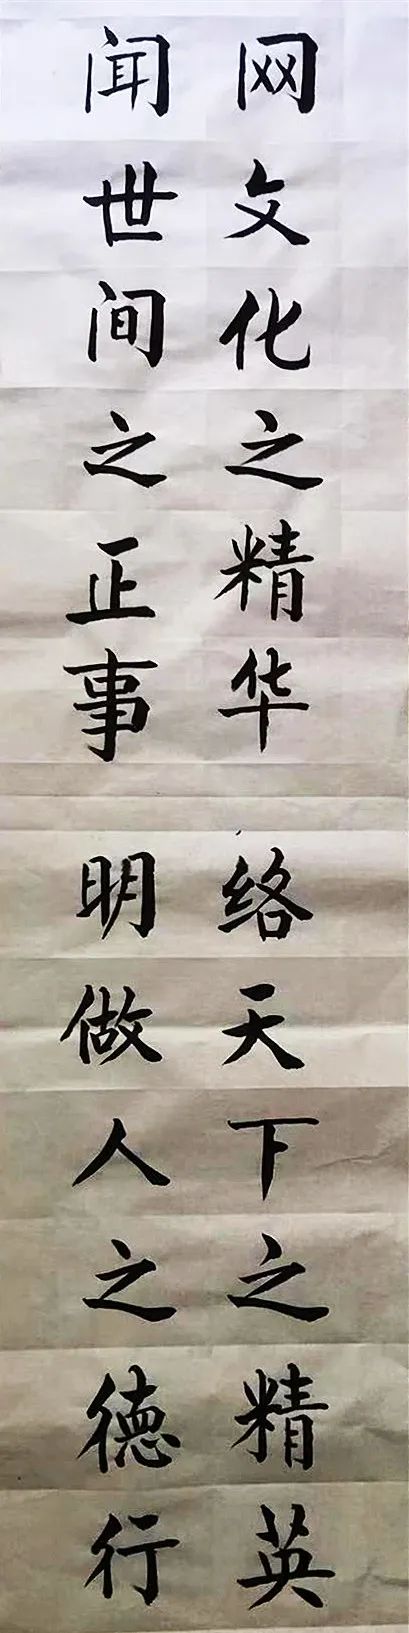 网文化之精华 络天下之精英
闻世间之正事 明做人之德行